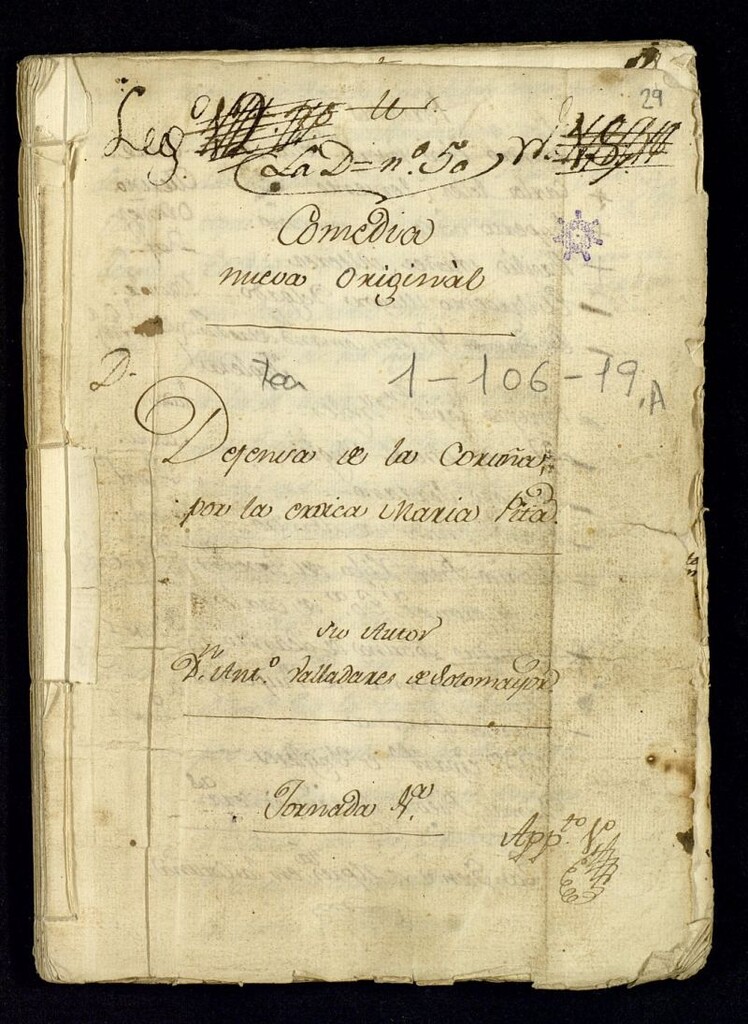 29
Leg.º
La D= nº. 5º
Comedia
nueva original
D.
Tea 1-106-19, A
Defensa de la Coruña,
por la eroica Maria Pita.
Su Autor
D.n Ant.º Valladares de Sotomayor.
Jornada 1.ª
App.to 1º